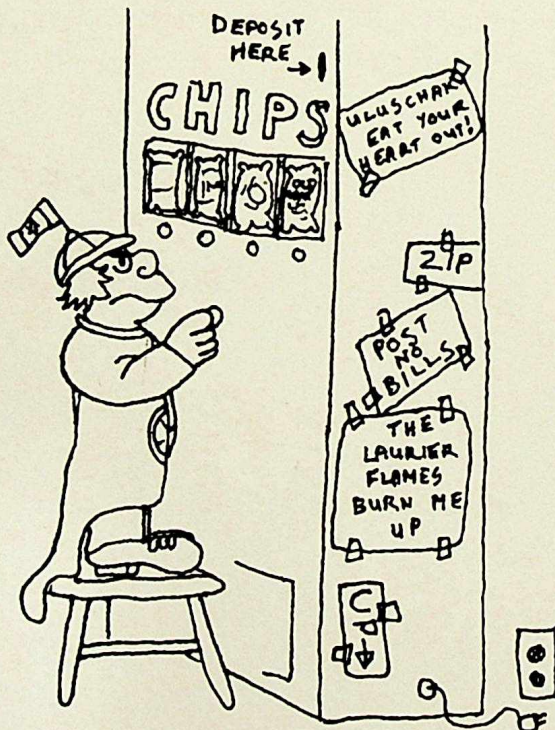 DEPOSIT
HERE →
CHIPS
ULUSCHAK
EAT YOUR
HEART OUT!
ZIP
POST
NO
BILLS
THE
LAURIER
FLAMES
BURN ME
UP